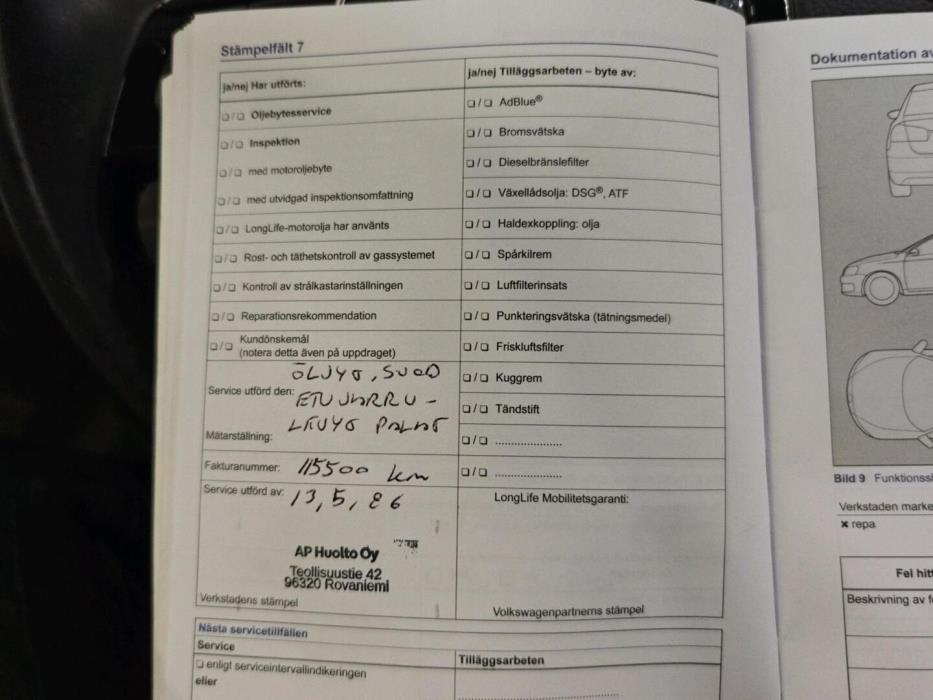 Stämpelfält 7
ja/nej Har utförts:
❏/❏ Oljebytesservice
❏/❏ Inspektion
❏/❏ med motoroljebyte
❏/❏ med utvidgad inspektionsomfattning
❏/❏ LongLife-motorolja har använts
❏/❏ Rost- och täthetskontroll av gassystemet
❏/❏ Kontroll av strålkastarinställningen
❏/❏ Reparationsrekommendation
❏/❏ Kundönskemål
(notera detta även på uppdraget)
ÖLJYÖ, SUOD
Service utförd den: ETUJARRU-
LEVYÖ PALAT
Mätarställning:
Fakturanummer: 115500 km
Service utförd av: 13,5,26
AP Huolto Oy
Teollisuustie 42
96320 Rovaniemi
Verkstadens stämpel
ja/nej Tilläggsarbeten – byte av:
❏/❏ AdBlue®
❏/❏ Bromsvätska
❏/❏ Dieselbränslefilter
❏/❏ Växellådsolja: DSG®, ATF
❏/❏ Haldexkoppling: olja
❏/❏ Spårkilrem
❏/❏ Luftfilterinsats
❏/❏ Punkteringsvätska (tätningsmedel)
❏/❏ Friskluftsfilter
❏/❏ Kuggrem
❏/❏ Tändstift
❏/❏ ....................
❏/❏ ....................
LongLife Mobilitetsgaranti:
Volkswagenpartnerns stämpel
Nästa servicetillfällen
Service
❏ enligt serviceintervallindikeringen
eller
Tilläggsarbeten
Dokumentation av
Bild 9 Funktionss
Verkstaden marke
× repa
Fel hitt
Beskrivning av f